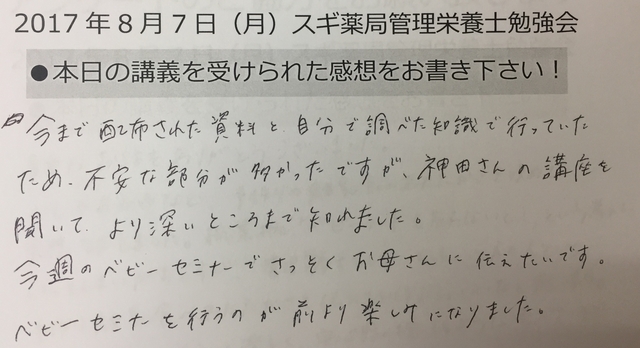 2017年8月7日（月）スギ薬局管理栄養士勉強会
●本日の講義を受けられた感想をお書き下さい！
今まで配布された資料と自分で調べた知識で行っていた
ため、不安な部分が多かったですが、神田さんの講座を
聞いて、より深いところまで知れました。
今週のベビーセミナーでさっそくお母さんに伝えたいです。
ベビーセミナーを行うのが前より楽しみになりました。